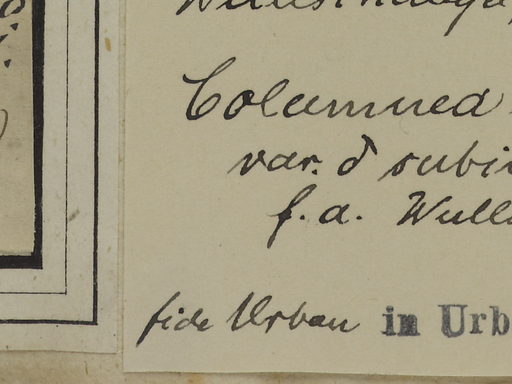 Columnea
var. δ subi
f. a. Wulls
fide Urban in Urb